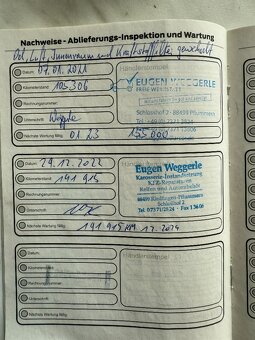 Nachweise - Ablieferungs-Inspektion und Wartung
Öl, Luft, Innenraum und Kraftstofffilter gewechselt
Datum 07.01.2021
Händlerstempel
EUGEN WEGGERLE
FREIE WERKSTATT
Kilometerstand 105 306
Rechnungsnummer
Schlosshof 2 - 88499 Pflummern
Unterschrift
Nächste Wartung fällig 01.23 135 000
Datum 29.12.2022
Händlerstempel
Eugen Weggerle
Karosserie-Instandsetzung
KFZ-Reparaturen
Reifen und Autozubehör
88499 Riedlingen-Pflummern
Schlosshof 2
Kilometerstand 141 915
Rechnungsnummer
Unterschrift
Nächste Wartung fällig 191 915 KM 12.2024
Datum
Händlerstempel
Kilometerstand
Rechnungsnummer
Unterschrift
Nächste Wartung fällig